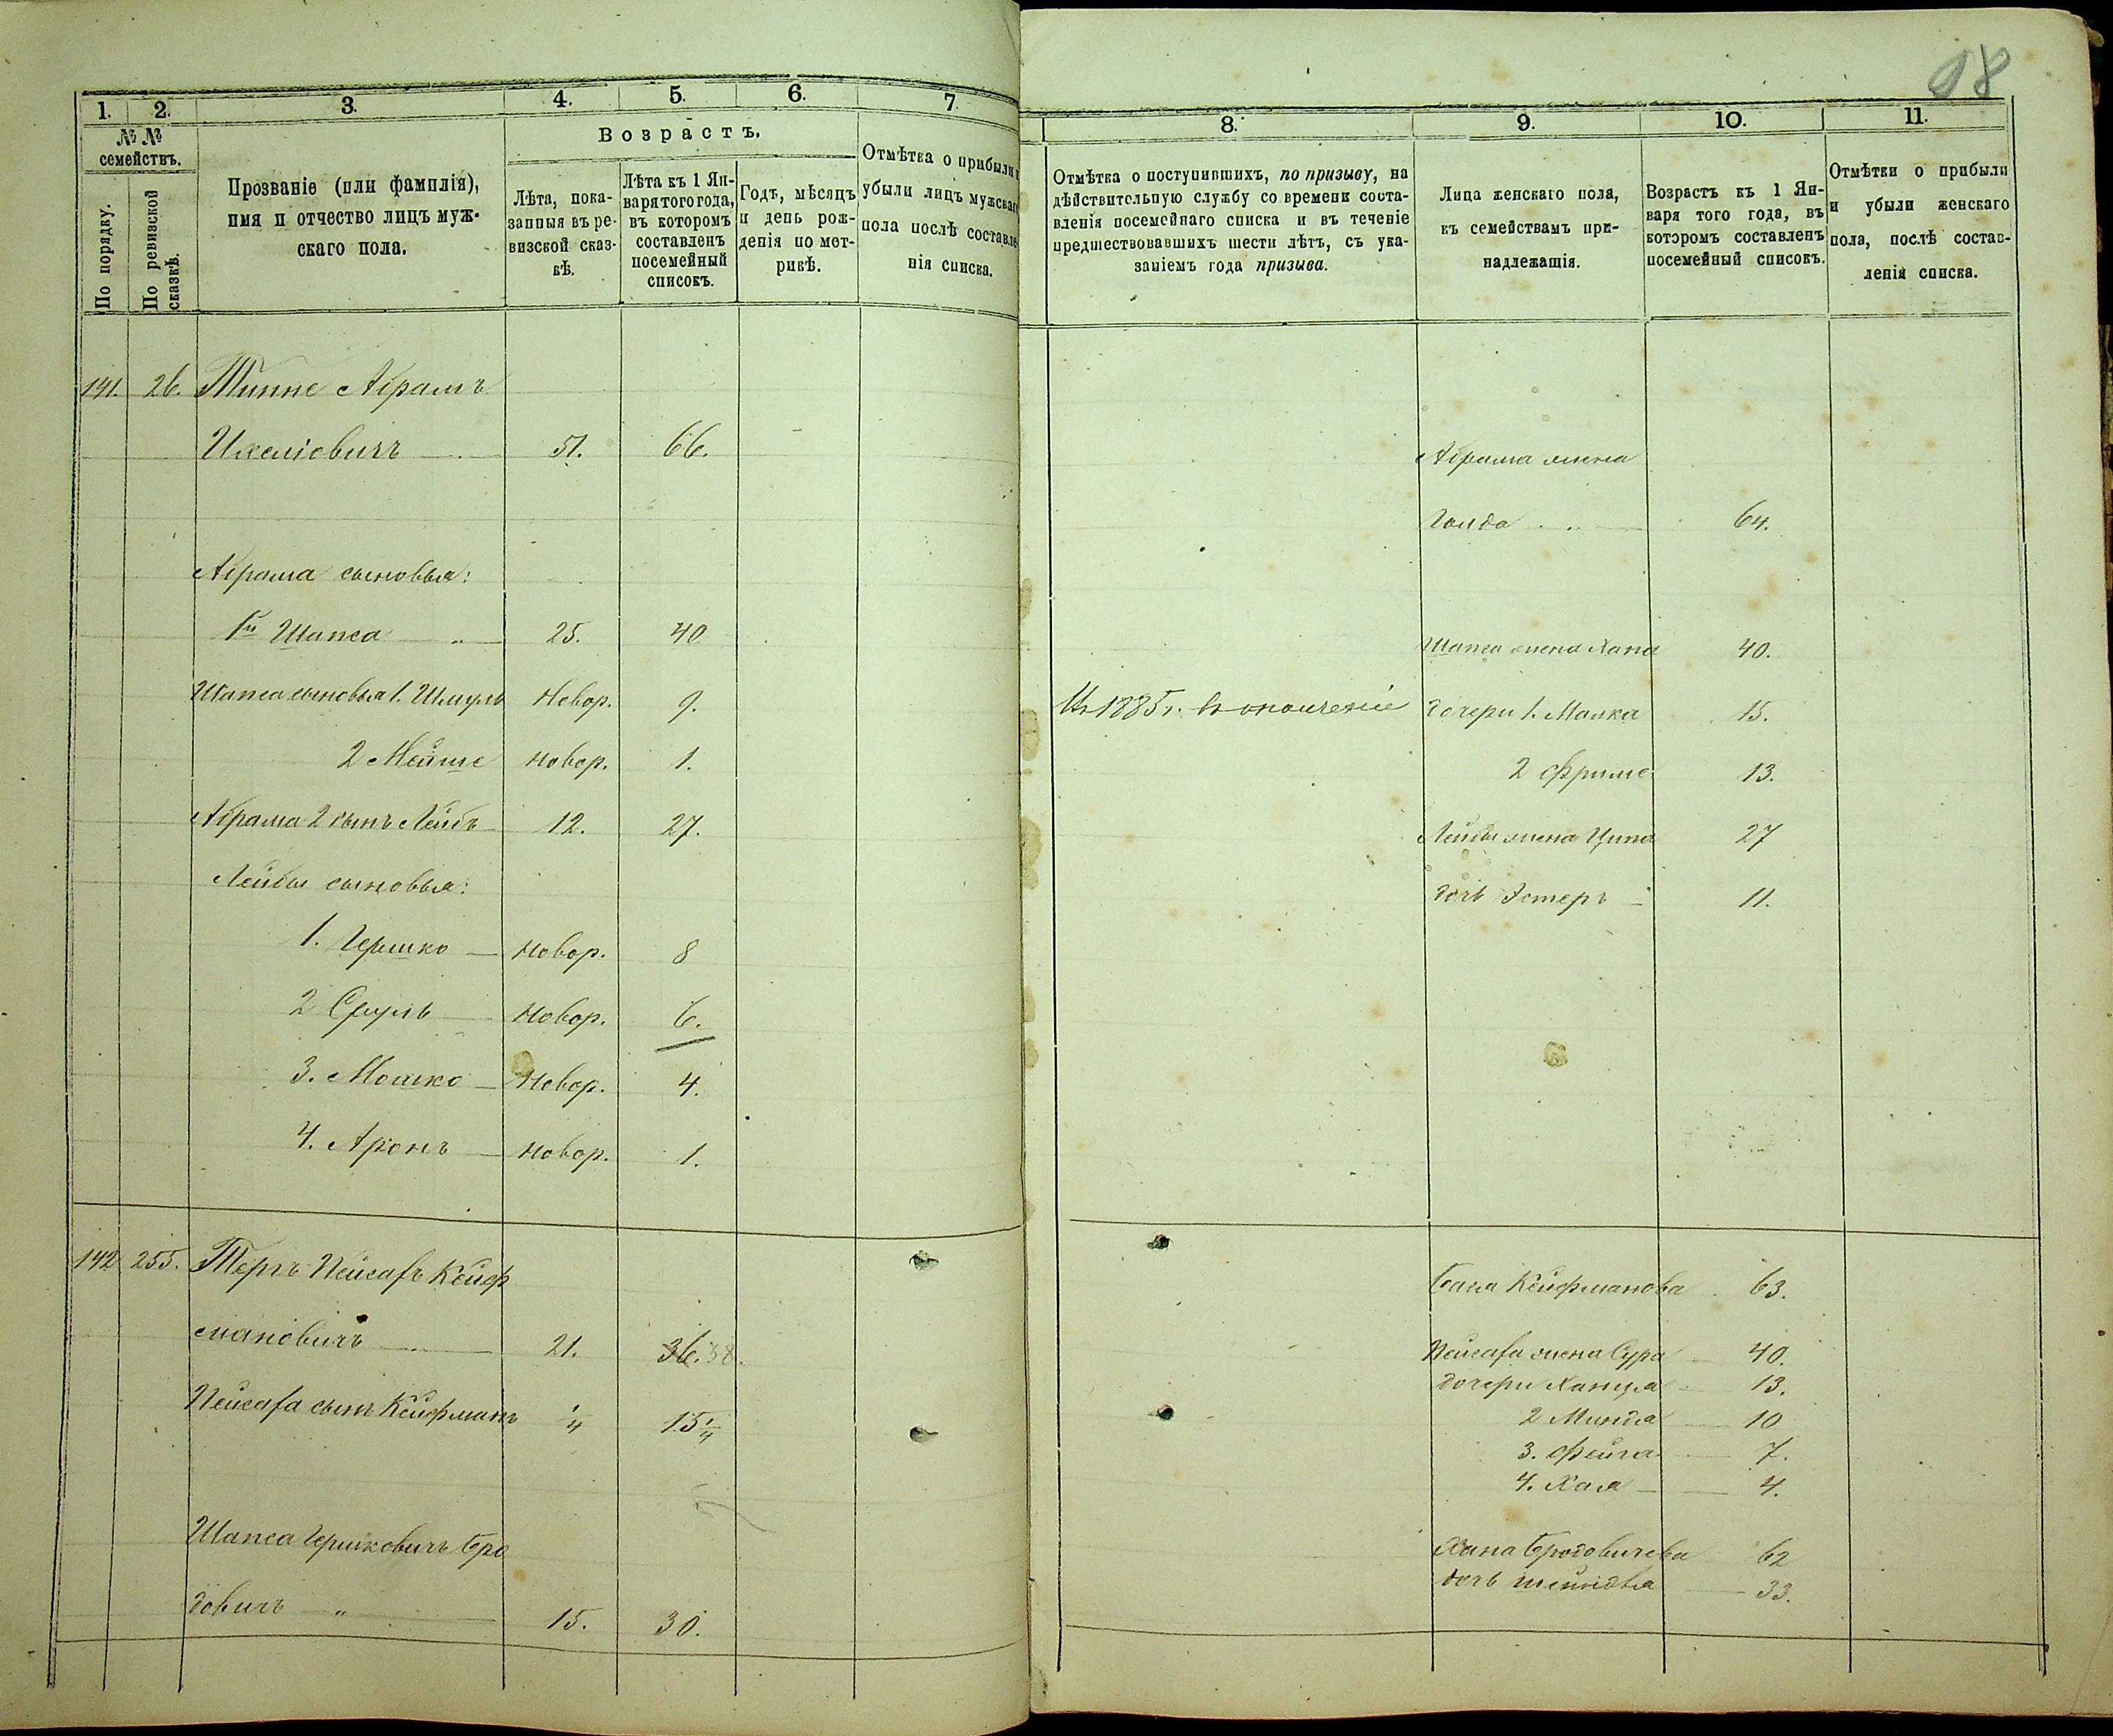 18
1. 2. 3. 4. 5. 6. 7
№ №
семействъ.
По порядку.
По ревизской
сказкѣ.
Прозваніе (или фамилія),
имя и отчество лицъ муж-
скаго пола.
Возрастъ.
Лѣта, пока-
занныя въ ре-
визской сказ-
кѣ.
Лѣта къ 1 Ян-
варятого года,
въ которомъ
составленъ
посемейный
списокъ.
Годъ, мѣсяцъ
и день рож-
денія по мет-
рикѣ.
Отмѣтка о прибыли и
убыли лицъ мужскаго
пола послѣ составле-
нія списка.
141. 26. Типпе Абрамъ
Ихеліовичъ 51. 66.
Абрама сыновья:
1й Шапса 25. 40
Шапса сыновья 1. Шмуль Новор. 9.
2 Мейше Новор. 1.
Абрама 2 сынъ Лейбъ 12. 27.
Лейбы сыновья:
1. Гершко Новор. 8
2 Сруль Новор. 6.
3. Мошко Новор. 4.
4. Аронъ Новор. 1.
142 255. Теръ Пейсахъ Койф
мановичъ 21. 36. 38.
Пейсаха сынъ Койфманъ 1/4 15 1/4
Шапса Гершковичъ Бро
довичъ 15. 30.
8. 9. 10. 11.
Отмѣтка о поступившихъ, по призыву, на
дѣйствительную службу со времени соста-
вленія посемейнаго списка и въ теченіе
предшествовавшихъ шести лѣтъ, съ ука-
заніемъ года призыва.
Лица женскаго пола,
къ семействамъ при-
надлежащія.
Возрастъ къ 1 Ян-
варя того года, въ
которомъ составленъ
посемейный списокъ.
Отмѣтки о прибыли
и убыли женскаго
пола, послѣ состав-
ленія списка.
Абрама жена
Голда 64.
Шапса жена Хана 40.
1885 г. въ ополченіе дочери 1. Малка 15.
2 Фриме 13.
Лейбы жена Ципа 27
дочь Эстеръ 11.
Бася Койфманова 63.
Пейсаха жена Сура 40.
дочери Ханця 13.
2 Миндля 10
3. Фейга 7.
4. Хая 4.
Хана Бродовичева 62
дочь Шейндля 33.